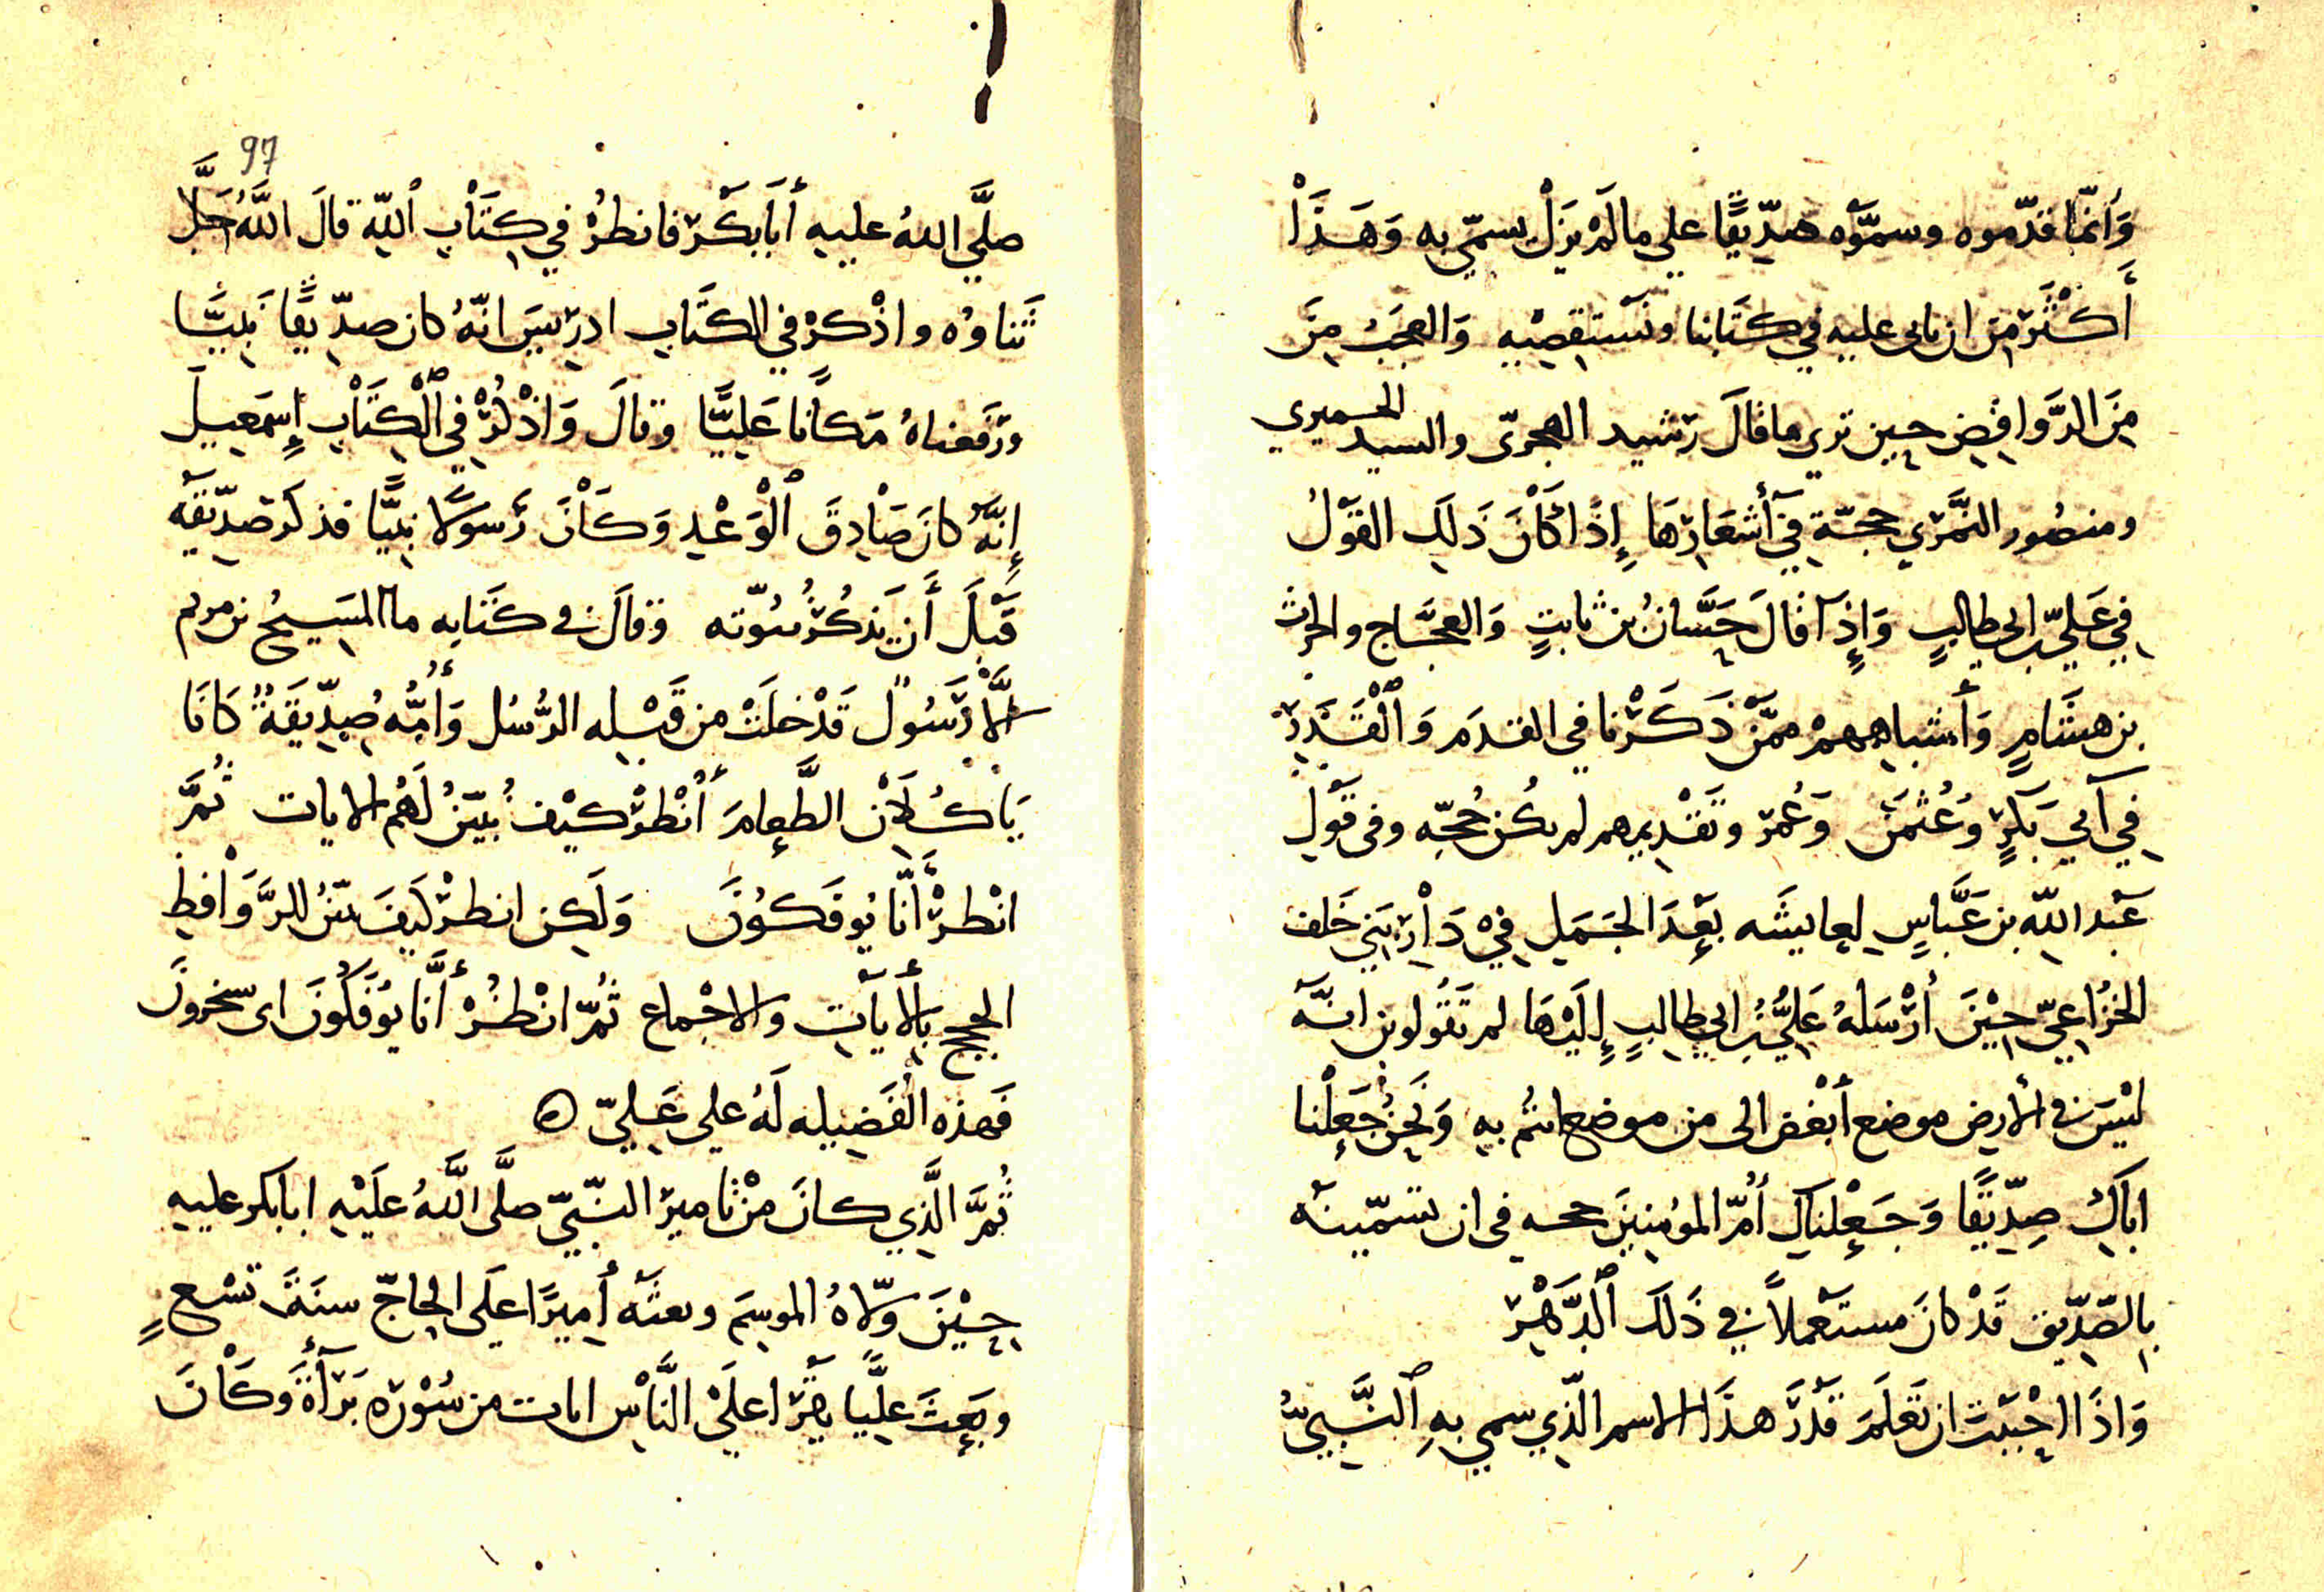 وَانّما قدّموه وسمَّوْه صدِّيقًا علي ما لَمْ يَزَلْ يسمّي به وَهَذَا
أَكْثَر مِنَ ان ناتى عليه في كتَابنا ونستقصِيه وَالعجَبُ مِنَ
مِنَ الرَّوَافِضِ حِين تري ما قَالَ رَشيد الهجرىّ والسيد الحميري
ومنصُور النمَّرَي حجّة فِي أَشعَارِهَا إِذَا كَانَ ذَلِكَ القَوْلُ
فِي عَليِّ بن ابي طالبٍ وَإِذَا قَالَ حَسَّانُ بن ثابتٍ وَالعجَّاج والحرث
بن هشَامٍ وَأَشباههمْ ممّنْ ذَكَرْنا في القدَم وَالْقَدْرِ
فِي أَبي بَكرٍ وَعُثمَن وَعُمَر وتَقْديمهم لم يكُن حُجّه وفى قوْلِ
عَبْد اللّهِ بن عَبَّاسٍ لعايشَه بَعْدَ الجَمَلِ فِي دَارِ بَنِي خَلف
الخزَاعِيّ حِيْنَ أرْسَلهُ عَليُّ بنُ ابي طالِبٍ إِلَيْهَا لم تَقُولون انّه
لَيْسَ في الأرضِ موضع أَبْغض الى من موضع انتُم بهِ وَنَحنُ جَعلْنا
اباكِ صِدِّيقًا وَجَعلْناكِ أُمّ المؤمنِينَ حجه في ان تسمّيَنه
بالصِّدِّيق قَدْ كانَ مستَعْملاً في ذَلكَ الدَّهْر
وَاذَا احْبَبْتَ ان تَعْلَمَ قَدْرَ هذَا الاسم الّذِي سمي بهِ النَّبيُّ
97
صلَّي اللهُ عليهِ أَبَابَكْر فانظُرْ في كِتَابِ اللّهِ قالَ اللَّهُ جَلَّ
ثَناؤُه واذْكرْ في الكتَابِ ادرِيسَ انّهُ كان صدِّيقًا نَبِيًّا
ورَفعناهُ مَكَانًا عَليًّا وقالَ وَاذْكُرْ فِي الْكِتَابِ إِسمَعِيلَ
إِنَّهُ كانَ صَادِقَ الْوَعْدِ وَكَانَ رَسولًا نبيًّا فذكَر صدّيقيّه
قَبْلَ أَن يَذكُرَ نبُوّته وقالَ في كتَابه ما المَسِيحُ بن مريم
إلَّا رَسُولٌ قَدْ خلَتْ من قَبْلِه الرُّسُل وَأُمُّه صِدِّيقَةٌ كَانَا
يَأْكُلَانِ الطَّعامَ أنْظرْ كيْف نُبيّنُ لَهُم الايات ثُمَّ
انْظرْ أَنَّا يُوفَكونَ وَلَكِن انظرْ كَيفَ نبيّنُ للرَّوَافِظِ
الحجج بالأيآتِ والاجْماع ثُمّ انْظُرْ أَنَّا يُوفَكُونَ اى يسخرونَ
فَهذه الْفَضِيله لَهُ علي عَليّ ه
ثُمَّ الَّذِي كانَ مِنْ تاميرَ النّبيّ صلَّى اللَّهُ علَيْهِ ابابكر عليهِ
حِيْنَ ولّاهُ الموسِم وبعثَه أمِيرًا علَى الحاجّ سنَةَ تسْعٍ
وبعثَ عليًّا يقرَا علَيْ النَّاسِ ايات من سُوْرَه بَرَآءَةَ وَكَانَ